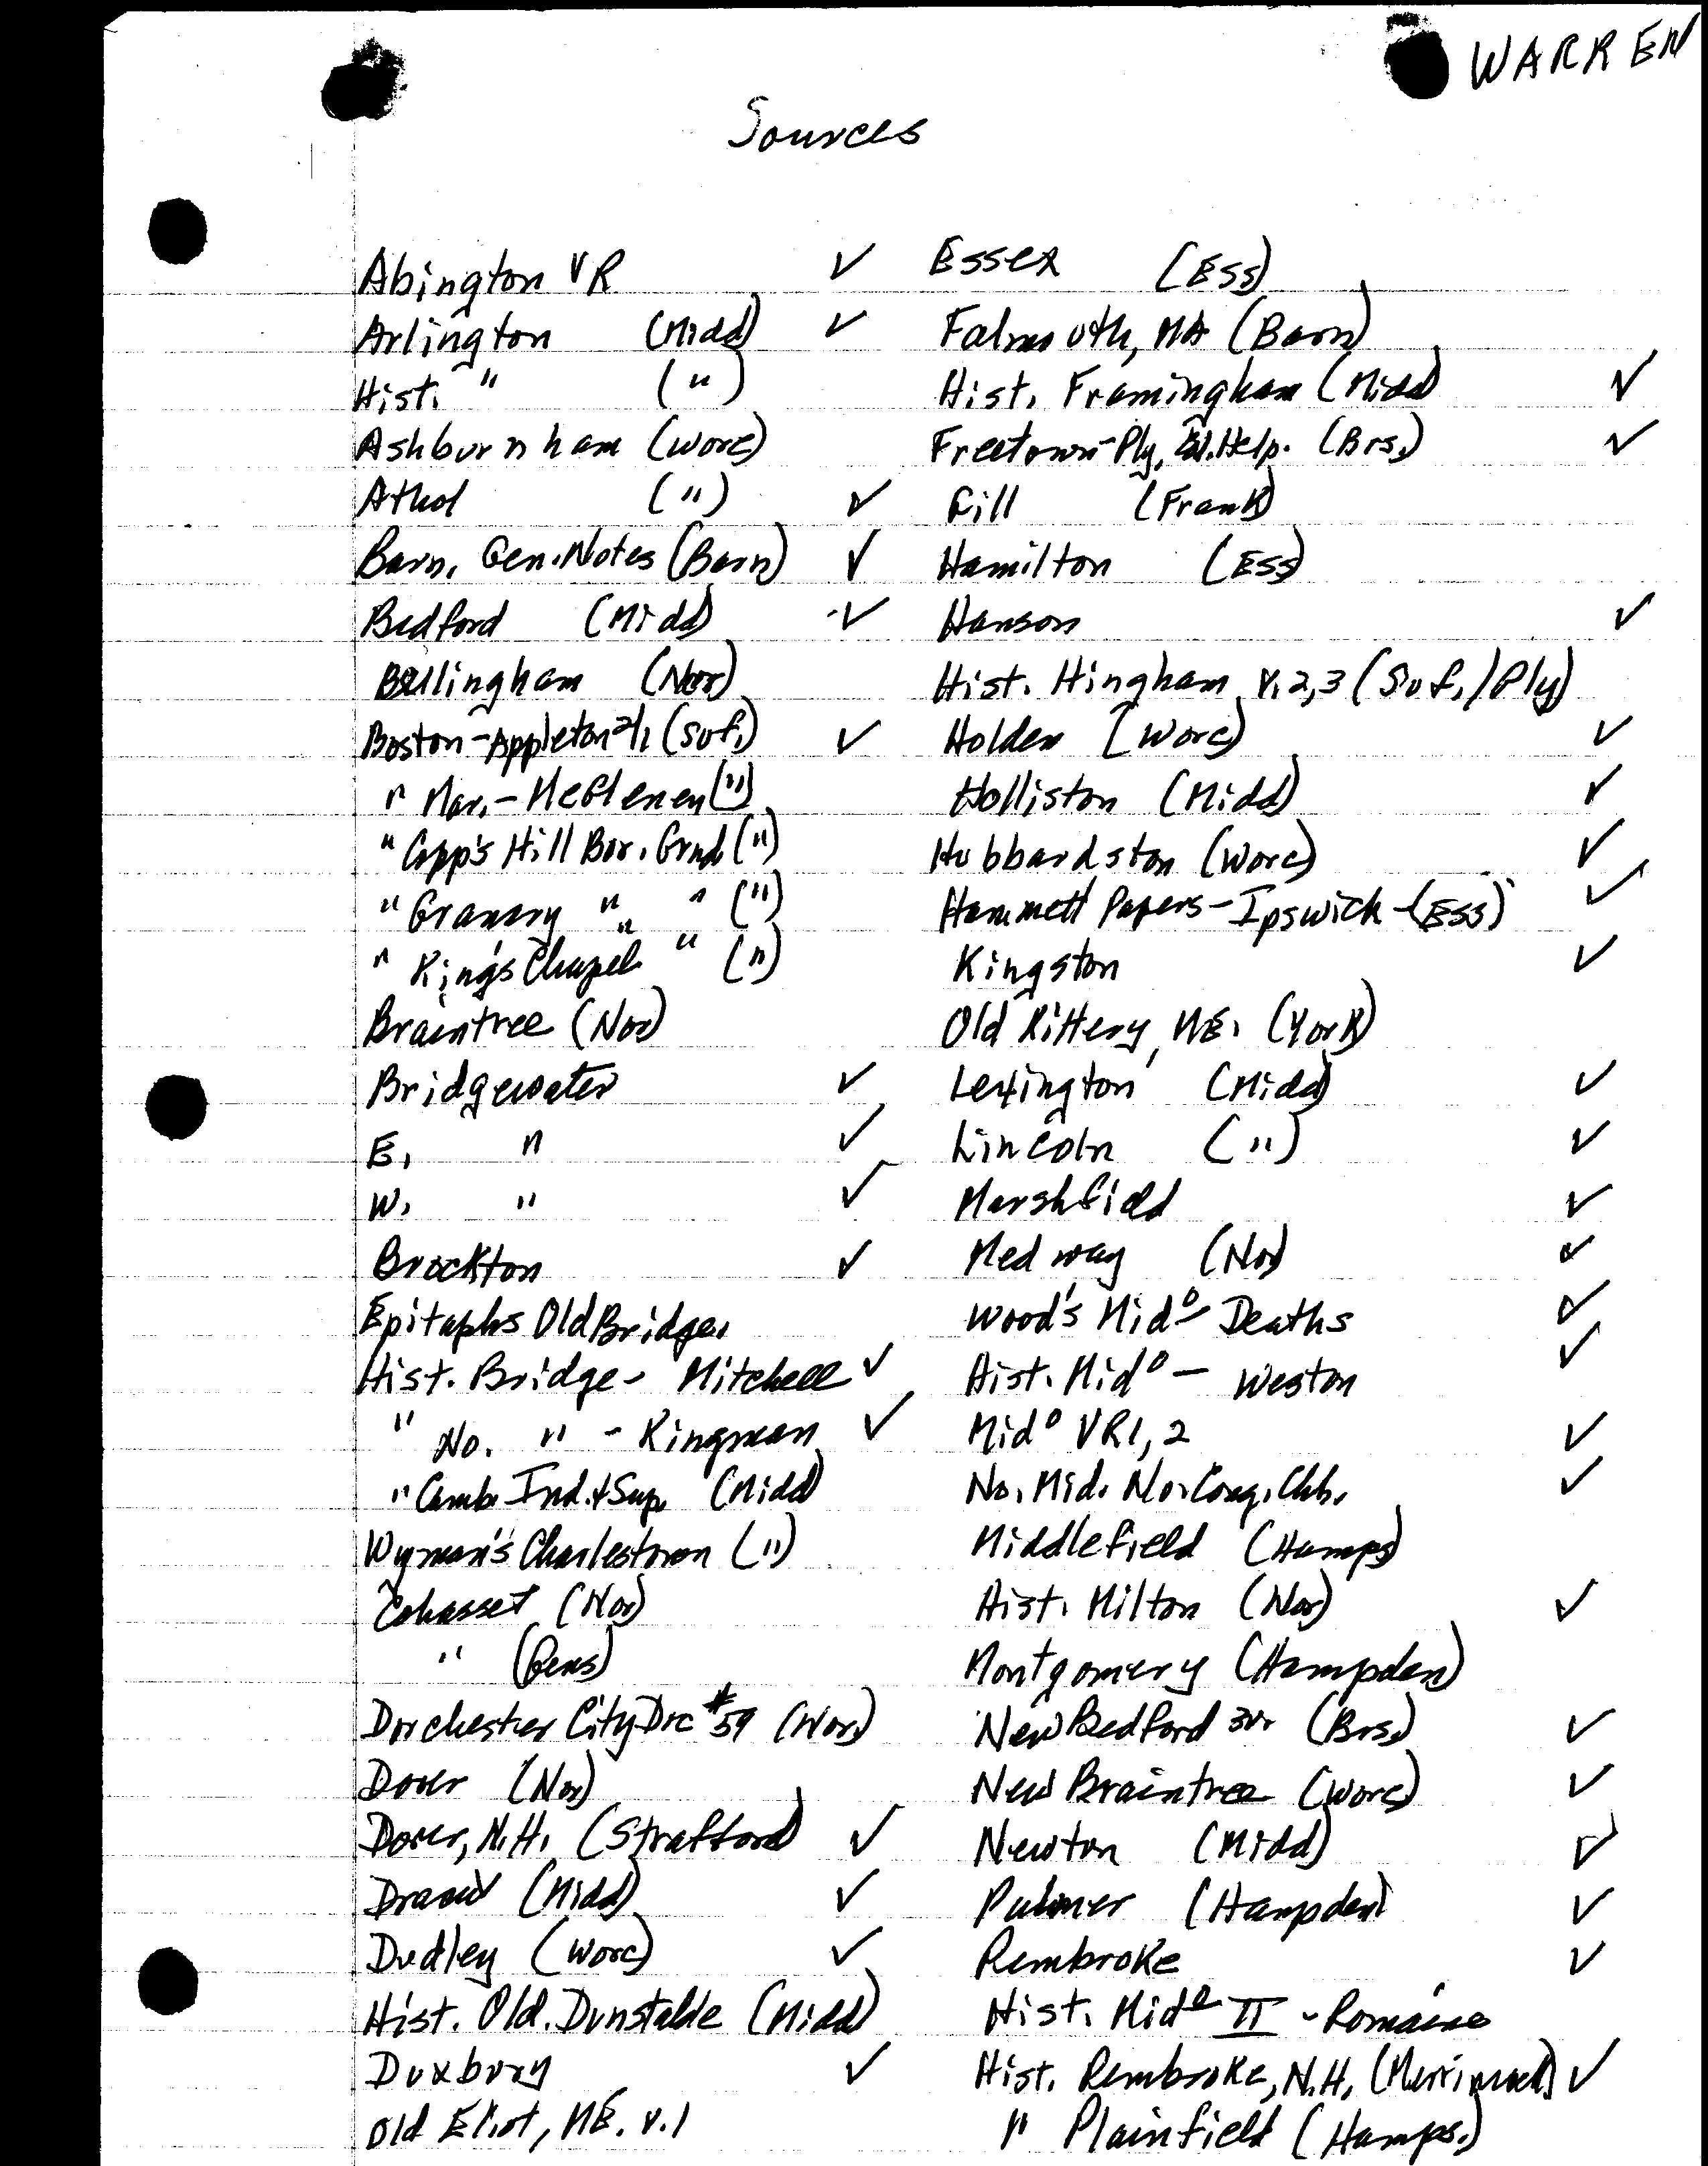 WARREN
Sources
Abington VR ✓
Arlington (Midd) ✓
Hist. " (")
Ashburnham (Worc)
Athol (") ✓
Barn. Gen. Notes (Barn) ✓
Bedford (Midd) ✓
Bellingham (Nor)
Boston - Appleton (Suf.) ✓
" Mar. - McGleneny (")
" Copp's Hill Bur. Grnd. (")
" Granary " " (")
" King's Chapel " " (")
Braintree (Nor)
Bridgewater ✓
E. " ✓
W. " ✓
Brockton ✓
Epitaphs Old Bridge.
Hist. Bridge - Mitchell ✓
" No. " - Kingman ✓
" Camb. Ind. + Sup. (Midd)
Wyman's Charlestown (")
Cohasset (Nor)
" (Gens)
Dorchester City Doc #59 (Nor)
Dover (Nor)
Dover, N.H. (Strafford) ✓
Dracut (Midd) ✓
Dudley (Worc) ✓
Hist. Old. Dunstable (Midd)
Duxbury ✓
Old Eliot, ME. v.1
Essex (Ess)
Falmouth, MA (Barn)
Hist. Framingham (Midd ✓
Freetown - Ply. Help. (Brs.) ✓
Gill (Frank)
Hamilton (Ess)
Hanson ✓
Hist. Hingham v.2,3 (Suf./Ply)
Holden (Worc) ✓
Holliston (Midd) ✓
Hubbardston (Worc) ✓
Hammett Papers - Ipswich - (Ess) ✓
Kingston ✓
Old Kittery, ME. (York)
Lexington (Midd) ✓
Lincoln (") ✓
Marshfield ✓
Medway (Nor) ✓
Wood's Mid° - Deaths ✓
Hist. Mid° - Weston ✓
Mid° VR1,2 ✓
No. Mid. No. Cong. Chh. ✓
Middlefield (Hamps)
Hist. Milton (Nor) ✓
Montgomery (Hampden)
New Bedford 3v. (Brs.) ✓
New Braintree (Worc) ✓
Newton (Midd) ✓
Palmer (Hampden) ✓
Pembroke ✓
Hist. Mid° II - Romaine
Hist. Pembroke, N.H. (Merrimack) ✓
" Plainfield (Hamps.)